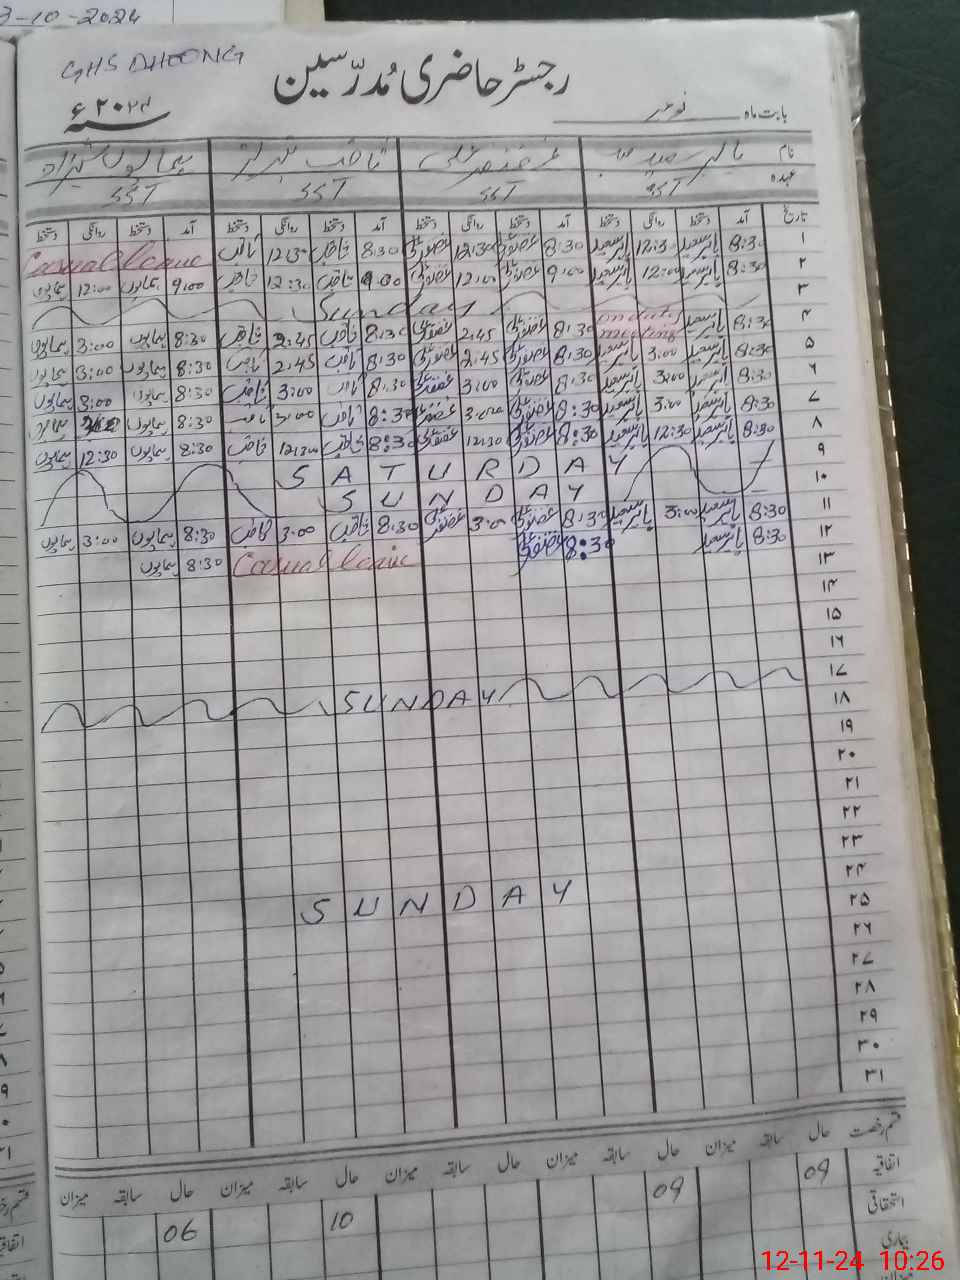 3-10-2024
GHS DHOONG
رجسٹر حاضری مُدرّسین
بابت ماہ نومبر سنہ ۲۰۲۴ء
نام بابر سعید غضنفر علی ثاقب ہمایوں شہزاد
عہدہ SST SST SST SST
تاریخ آمد دستخط روانگی دستخط آمد دستخط روانگی دستخط آمد دستخط روانگی دستخط آمد دستخط روانگی دستخط
۱ 8:30 بابر سعید 12:30 بابر سعید 8:30 غضنفر علی 12:30 غضنفر علی 8:30 ثاقب 12:30 ثاقب Casual leave
۲ 8:30 بابر سعید 12:00 بابر سعید 9:00 غضنفر علی 12:00 غضنفر علی 9:00 ثاقب 12:30 ثاقب 9:00 ہمایوں 12:00 ہمایوں
۳ Sunday
۴ 8:30 بابر سعید on duty meeting 8:30 غضنفر علی 2:45 غضنفر علی 8:30 ثاقب 2:45 ثاقب 8:30 ہمایوں 3:00 ہمایوں
۵ 8:30 بابر سعید 3:00 بابر سعید 8:30 غضنفر علی 2:45 غضنفر علی 8:30 ثاقب 2:45 ثاقب 8:30 ہمایوں 3:00 ہمایوں
۶ 8:30 بابر سعید 3:00 بابر سعید 8:30 غضنفر علی 3:00 غضنفر علی 8:30 ثاقب 3:00 ثاقب 8:30 ہمایوں 3:00 ہمایوں
۷ 8:30 بابر سعید 3:00 بابر سعید 8:30 غضنفر علی 3:00 غضنفر علی 8:30 ثاقب 3:00 ثاقب 8:30 ہمایوں ہمایوں
۸ 8:30 بابر سعید 12:30 بابر سعید 8:30 غضنفر علی 12:30 غضنفر علی 8:30 ثاقب 12:30 ثاقب 8:30 ہمایوں 12:30 ہمایوں
۹ SATURDAY
۱۰ SUNDAY
۱۱ 8:30 بابر سعید 3:00 بابر سعید 8:30 غضنفر علی 3:00 غضنفر علی 8:30 ثاقب 3:00 ثاقب 8:30 ہمایوں 3:00 ہمایوں
۱۲ 8:30 بابر سعید 8:30 غضنفر علی Casual leave 8:30 ہمایوں
۱۳
۱۴
۱۵
۱۶
۱۷ SUNDAY
۱۸
۱۹
۲۰
۲۱
۲۲
۲۳
۲۴ SUNDAY
۲۵
۲۶
۲۷
۲۸
۲۹
۳۰
۳۱
قسم رخصت حال سابقہ میزان حال سابقہ میزان حال سابقہ میزان حال سابقہ میزان
اتفاقیہ 09 09 10 06
استحقاقی
بیماری
12-11-24 10:26